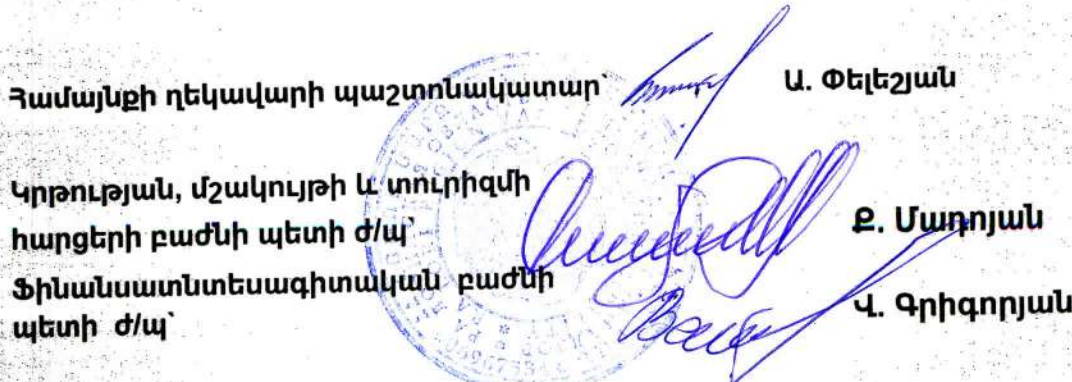 Համայնքի ղեկավարի պաշտոնակատար՝ Ա. Փելեշյան
Կրթության, մշակույթի և տուրիզմի
հարցերի բաժնի պետի ժ/պ՝ Ք. Մադոյան
Ֆինանսատնտեսագիտական բաժնի
պետի ժ/պ՝ Վ. Գրիգորյան